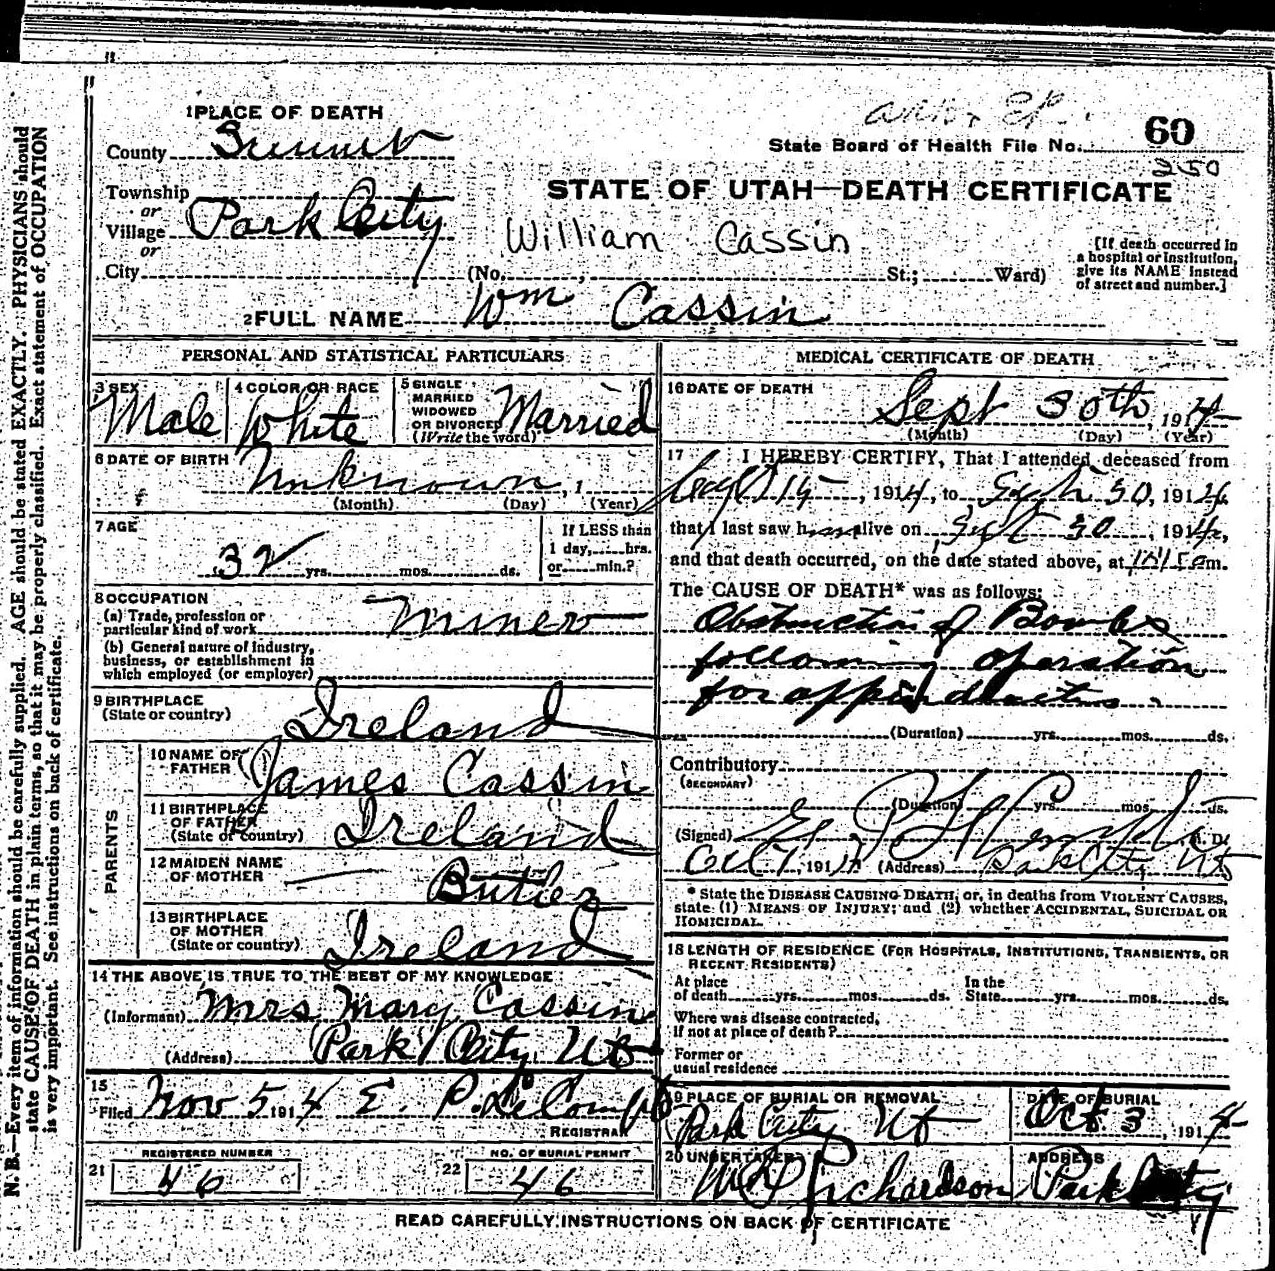 60
State Board of Health File No.
250
1 PLACE OF DEATH
County Summit
Township
or
Village Park City
or
City
STATE OF UTAH—DEATH CERTIFICATE
William Cassin
(No. , St.; Ward)
[If death occurred in
a hospital or institution,
give its NAME instead
of street and number.]
2 FULL NAME Wm Cassin
PERSONAL AND STATISTICAL PARTICULARS
3 SEX
Male
4 COLOR OR RACE
White
5 SINGLE
MARRIED
WIDOWED
OR DIVORCED
(Write the word)
Married
6 DATE OF BIRTH
Unknown, 1
(Month) (Day) (Year)
7 AGE
32 yrs. mos. ds.
If LESS than
1 day, hrs.
or min.?
8 OCCUPATION
(a) Trade, profession or
particular kind of work Miner
(b) General nature of industry,
business, or establishment in
which employed (or employer)
9 BIRTHPLACE
(State or country) Ireland
PARENTS
10 NAME OF
FATHER James Cassin
11 BIRTHPLACE
OF FATHER
(State or country) Ireland
12 MAIDEN NAME
OF MOTHER Butler
13 BIRTHPLACE
OF MOTHER
(State or country) Ireland
14 THE ABOVE IS TRUE TO THE BEST OF MY KNOWLEDGE
(Informant) Mrs Mary Cassin
(Address) Park City Ut
15
Filed Nov 5 1914 E. P. LeCompte
REGISTRAR
REGISTERED NUMBER
21 46
NO. OF BURIAL PERMIT
22 46
MEDICAL CERTIFICATE OF DEATH
16 DATE OF DEATH
Sept 30th, 1914
(Month) (Day) (Year)
17 I HEREBY CERTIFY, That I attended deceased from
Sept 15, 1914, to Sept 30, 1914,
that I last saw him alive on Sept 30 1914,
and that death occurred, on the date stated above, at m.
The CAUSE OF DEATH* was as follows:
Obstruction of Bowels
following operation
for appendicitis.
(Duration) yrs. mos. ds.
Contributory
(SECONDARY)
(Duration) yrs. mos. ds.
(Signed) M. D.
Oct 1, 191 (Address) Ut
* State the DISEASE CAUSING DEATH, or, in deaths from VIOLENT CAUSES,
state (1) MEANS OF INJURY; and (2) whether ACCIDENTAL, SUICIDAL OR
HOMICIDAL.
18 LENGTH OF RESIDENCE (FOR HOSPITALS, INSTITUTIONS, TRANSIENTS, OR
RECENT RESIDENTS)
At place
of death yrs. mos. ds.
In the
State yrs. mos. ds.
Where was disease contracted,
if not at place of death?
Former or
usual residence
19 PLACE OF BURIAL OR REMOVAL
Park City Ut
DATE OF BURIAL
Oct 3, 1914
20 UNDERTAKER
Richardson
ADDRESS
Park City
READ CAREFULLY INSTRUCTIONS ON BACK OF CERTIFICATE
N. B.—Every item of information should be carefully supplied. AGE should be stated EXACTLY. PHYSICIANS should
state CAUSE OF DEATH in plain terms, so that it may be properly classified. Exact statement of OCCUPATION
is very important. See instructions on back of certificate.